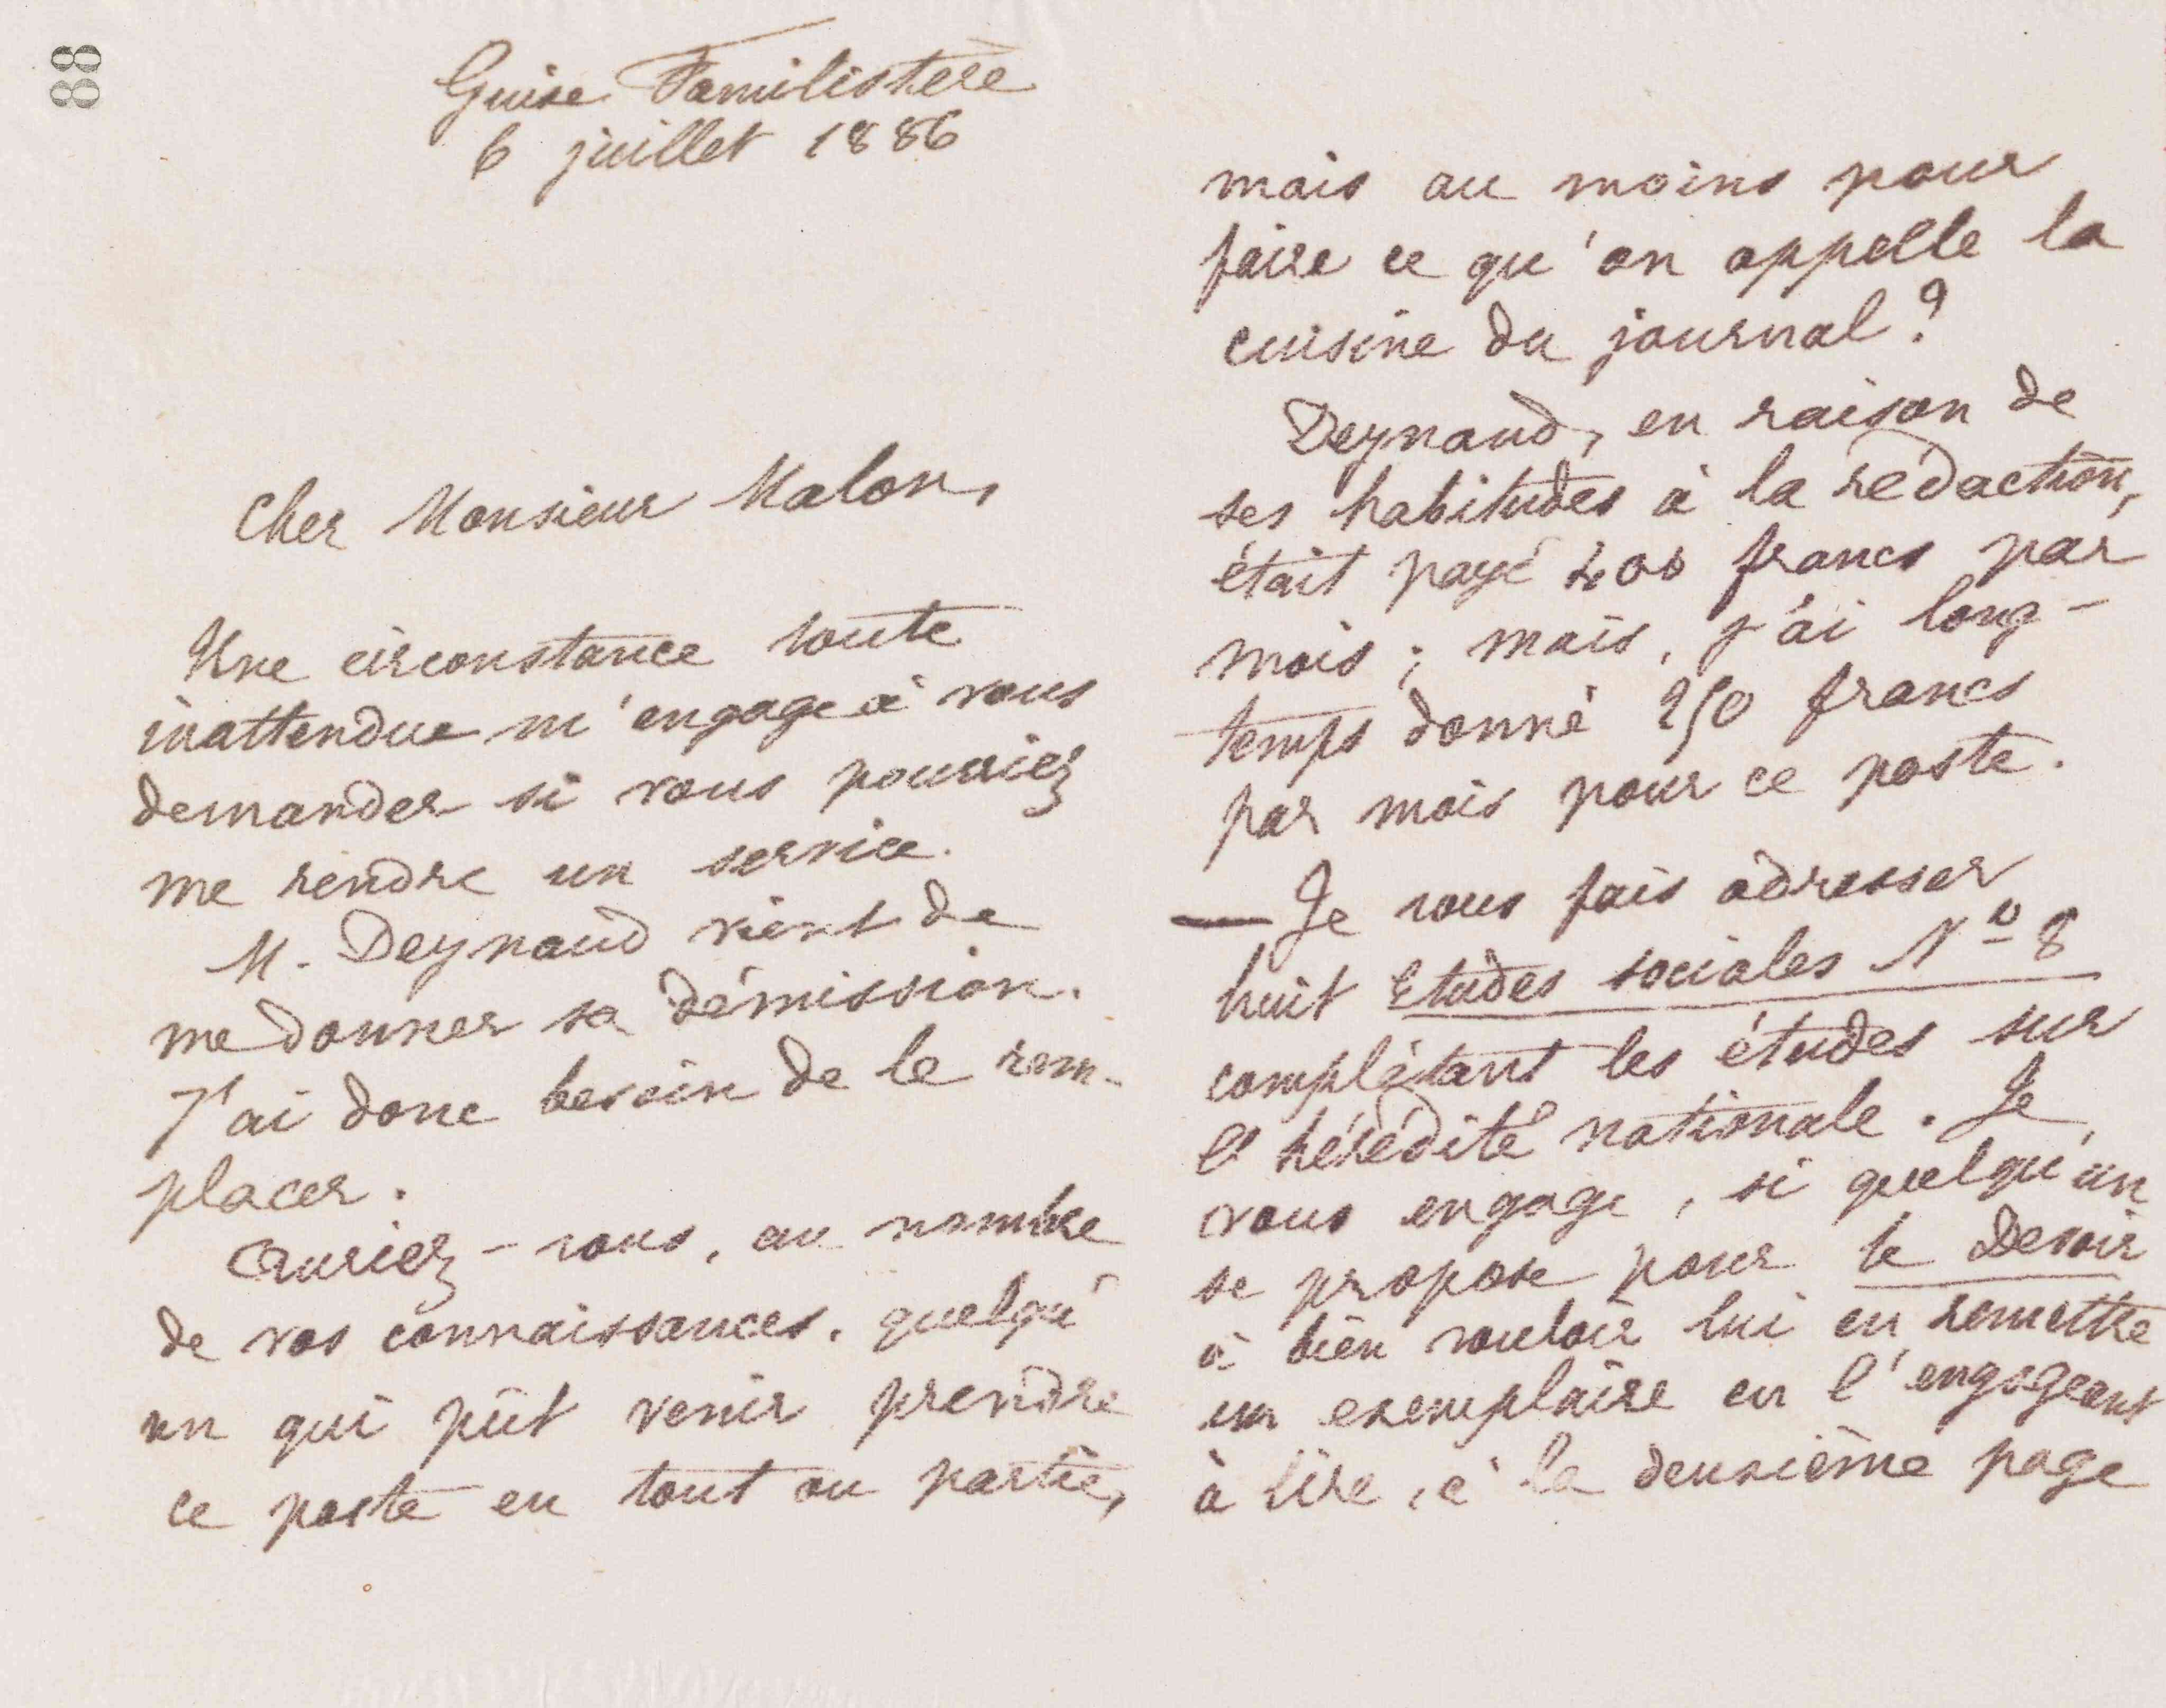 88
Guise Familistère
6 juillet 1886
Cher Monsieur Malon,
Une circonstance toute
inattendue m'engage à vous
demander si vous pourriez
me rendre un service.
M. Deynaud vient de
me donner sa démission.
J'ai donc besoin de le rem-
placer.
Auriez-vous, au nombre
de vos connaissances, quelqu'
un qui pût venir prendre
ce poste en tout ou partie,
mais au moins pour
faire ce qu'on appelle la
cuisine du journal ?
Deynaud, en raison de
ses habitudes à la rédaction,
était payé 400 francs par
mois ; mais, j'ai long-
temps donné 250 francs
par mois pour ce poste.
— Je vous fais adresser
huit Etudes sociales Nº 8
complétant les études sur
l'hérédité nationale. Je
vous engage, si quelqu'un
se propose pour le Devoir
à bien vouloir lui en remettre
un exemplaire en l'engageant
à lire, à la deuxième page